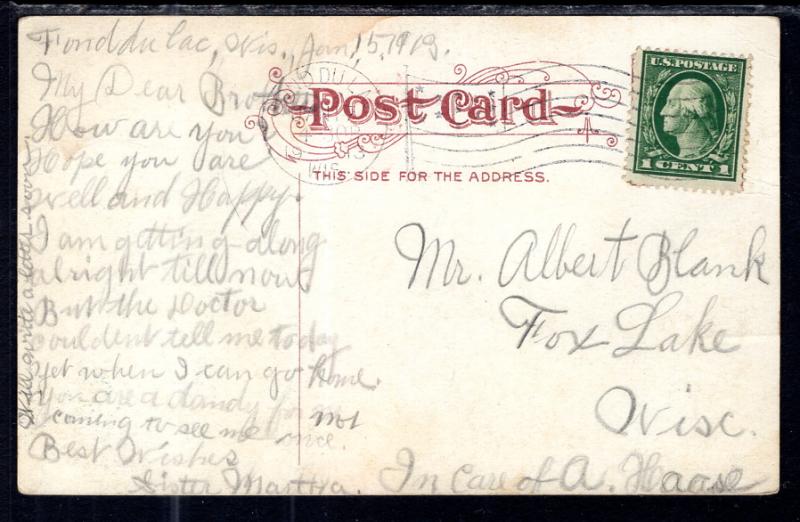 Fond du Lac, Wis., Jan, 15, 1913.
My Dear Brother
How are you
Hope you are
well and Happy.
I am getting along
alright till now
But the Doctor
couldent tell me today
yet when I can go home.
You are a dandy for not
coming to see me once.
Best Wishes
Sister Martha.
Will write a letter soon.
Post Card
THIS SIDE FOR THE ADDRESS.
U.S. POSTAGE
1 CENT 1
Mr. Albert Blank
Fox Lake
Wisc.
In Care of A. Haase